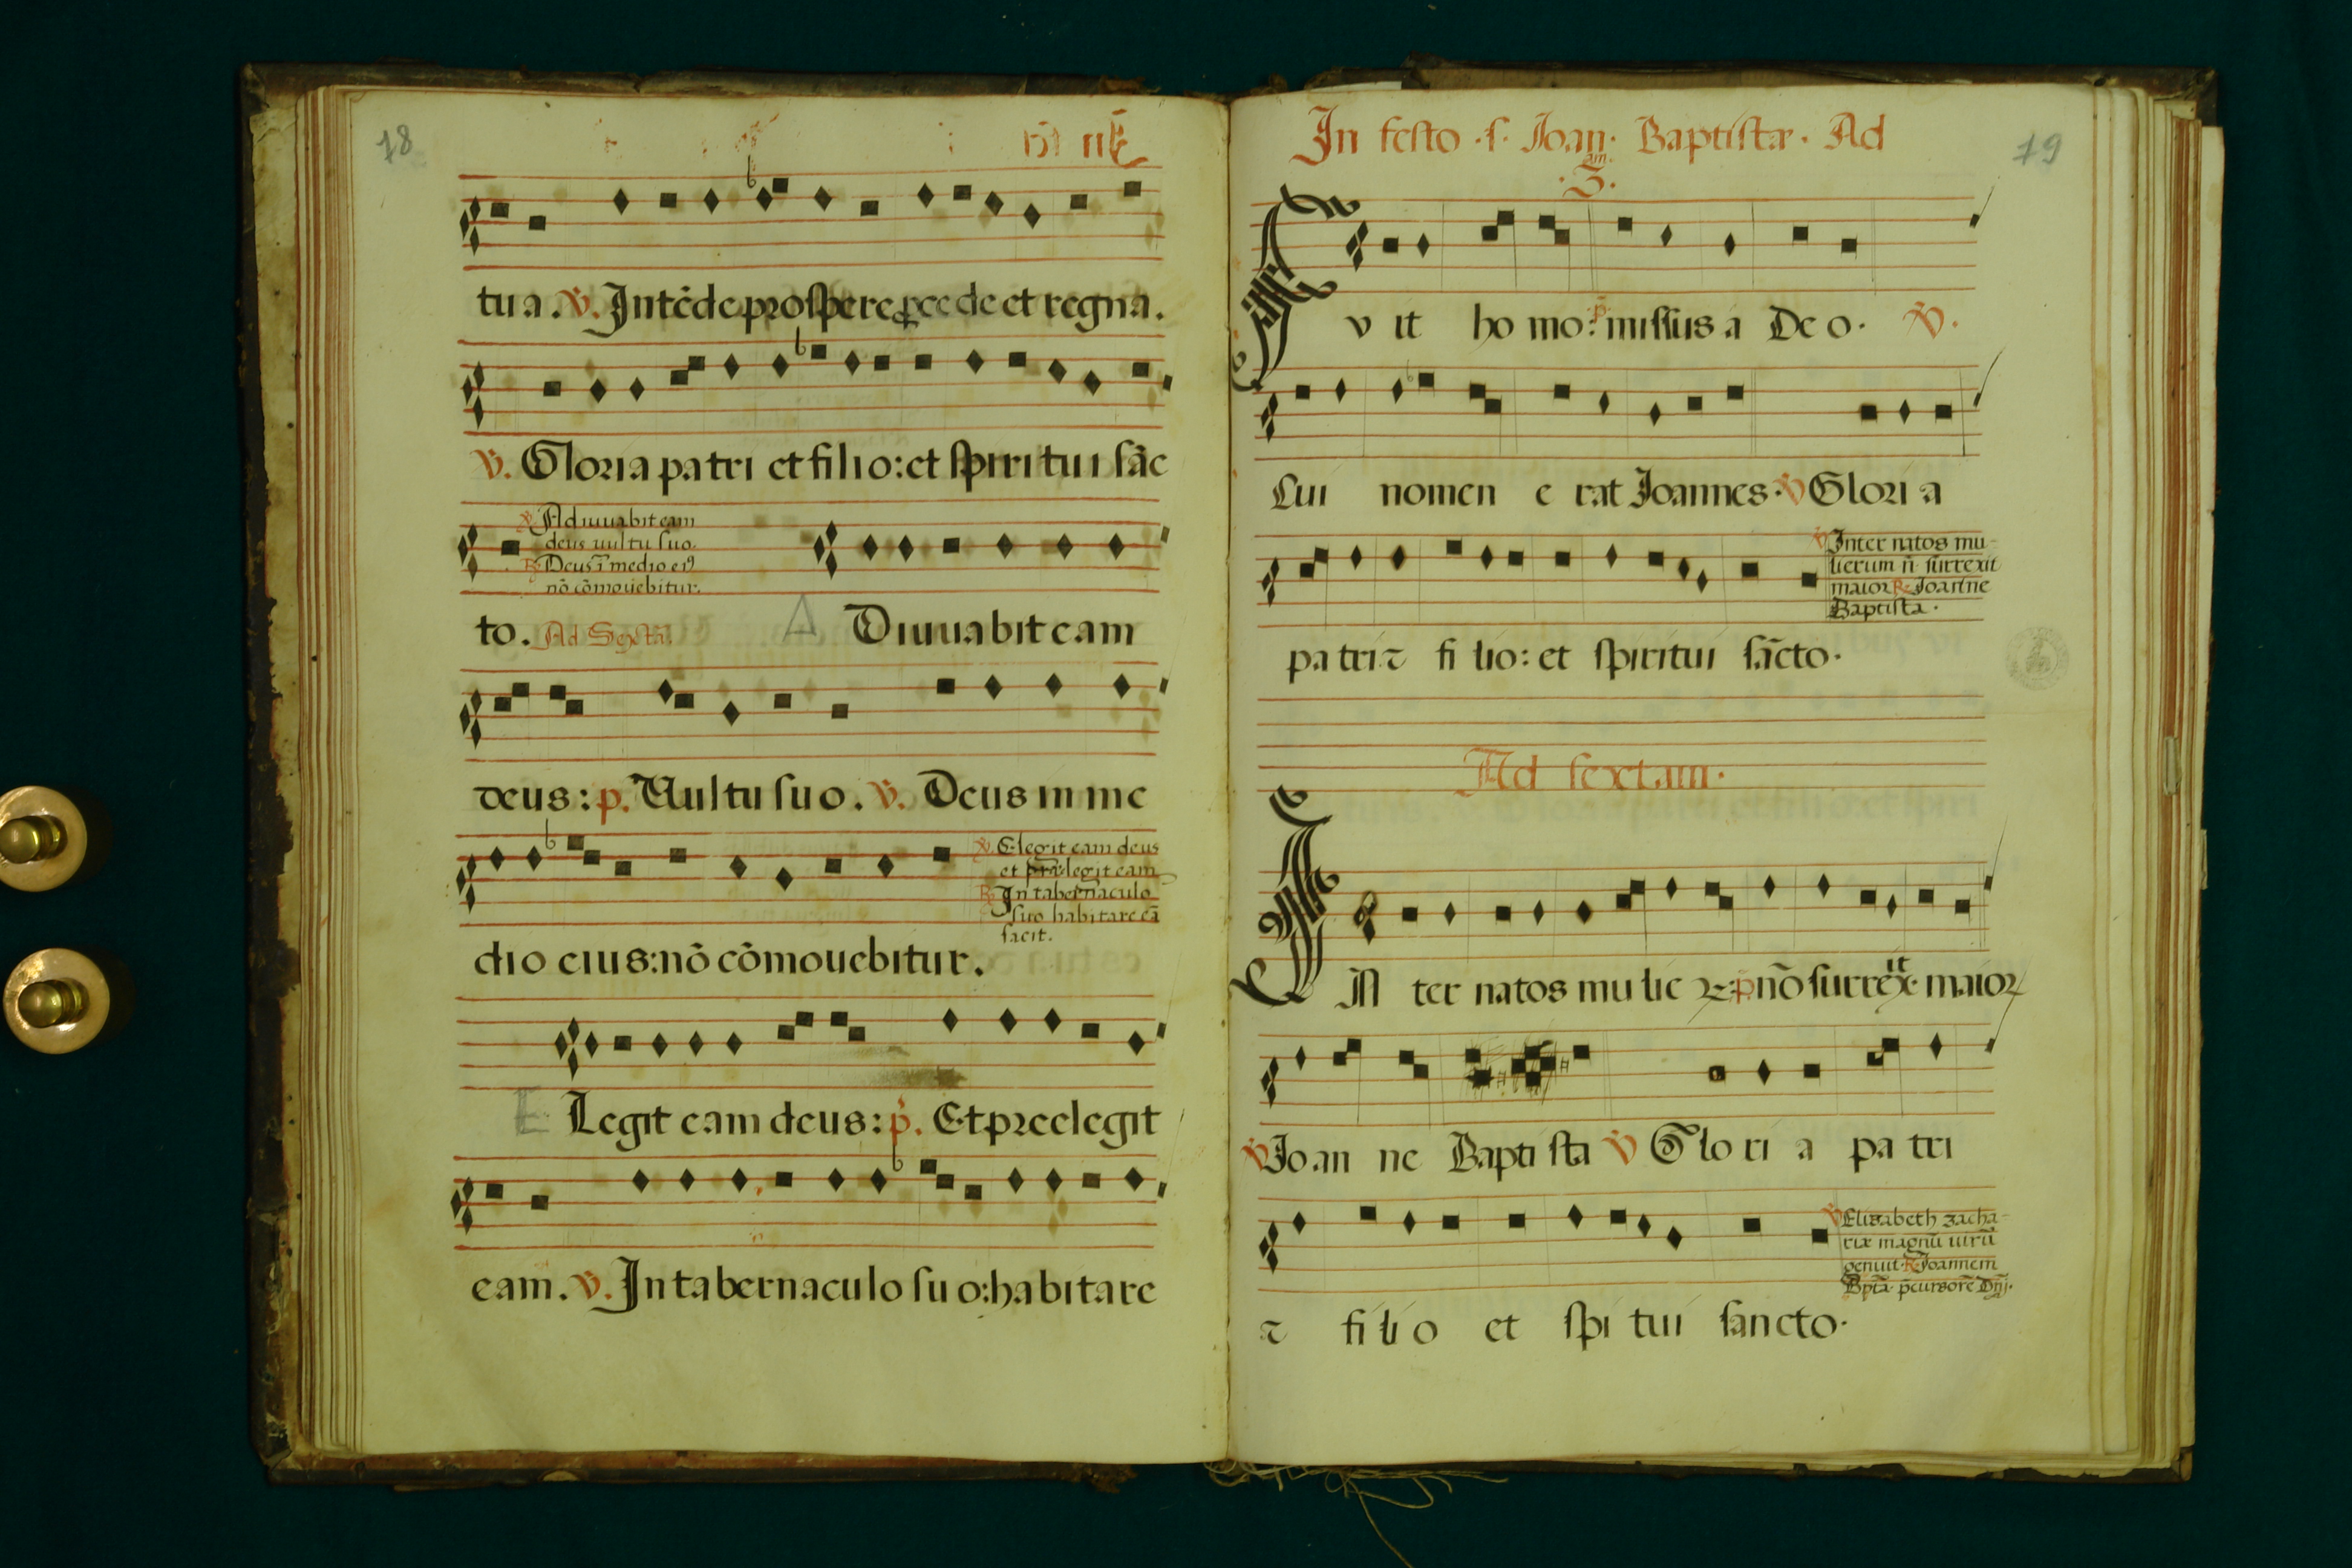 18
tua. ℣. Intēde prospere ꝓcede et regna.
℣. Gloria patri et filio: et spiritui sāc
℣. Adiuuabit eam
deus uultu suo.
℟. Deus ī medio eiꝰ
nō cōmouebitur.
to. Ad Sextā. A Diuuabit eam
deus: p. Uultu suo. ℣. Deus in me
℣. Elegit eam deus
et præelegit eam
℟. In tabernaculo
suo habitare eā
facit.
dio eius: nō cōmouebitur.
E Legit eam deus: p. Et preelegit
eam. ℣. In tabernaculo suo: habitare
In festo .s. Ioan. Baptistæ. Ad
.3.am
19
F vit homo: p. missus a Deo. ℣.
Cui nomen erat Ioannes. ℣ Gloria
℣ Inter natos mu
lierum ñ surrexit
maior ℟. Ioanne
Baptista.
patri ⁊ filio: et spiritui sācto.
Ad sextam.
IN ter natos mulieꝝ p nō surrex.it maior
℣ Ioanne Baptista ℣ Gloria patri
℣ Elisabeth zacha-
riæ magnū uirū
genuit. ℟. Ioannem
Bptā. p̄cursorē Dñj.
⁊ filio et spitui sancto.